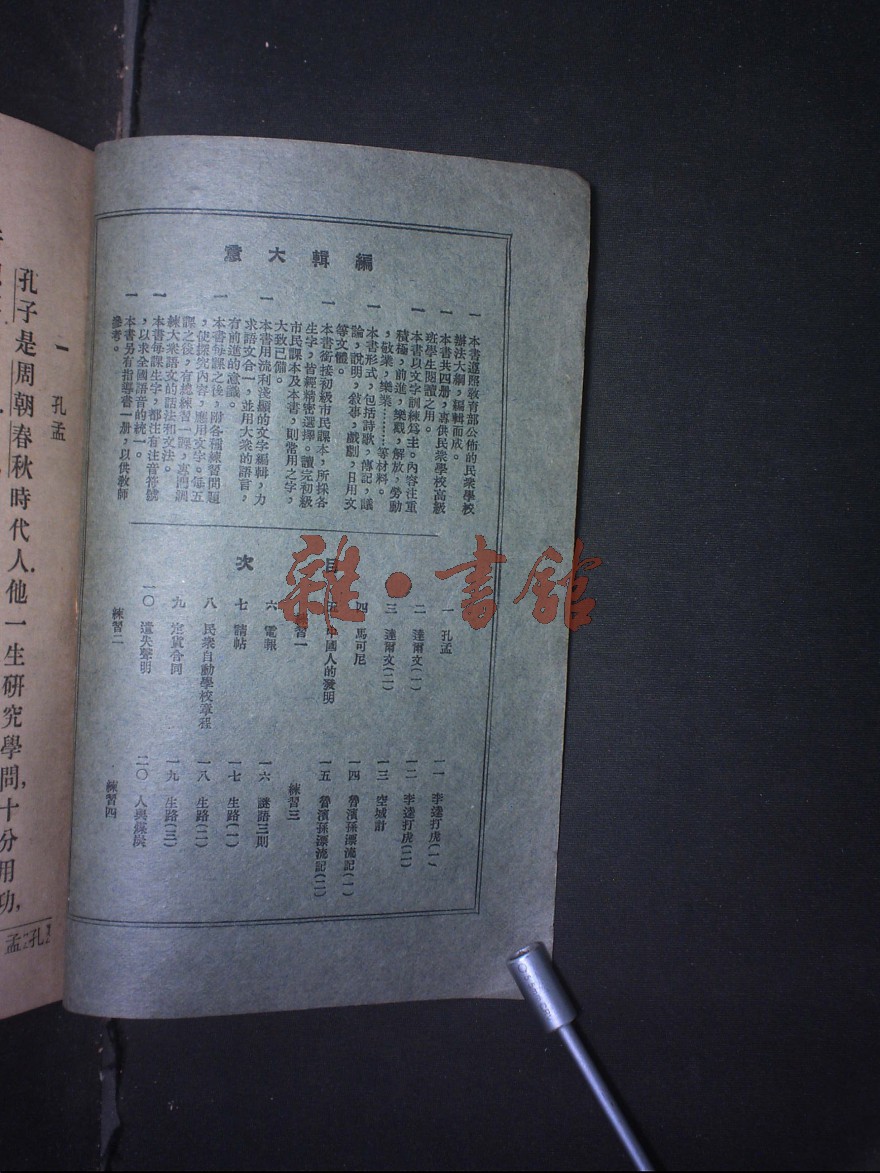 編輯大意
一 本書遵照教育部公佈的民衆學校
辦法大綱，編輯而成。
一 本書共四册，專供民衆學校高級
班學生閱讀之用。
一 本書以文字訓練爲主。內容注重
積極，前進，樂觀，解放，勞動
，敬業，樂業………等材料。
一 本書形式，包括詩歌，傳記，議
論，說明，敍事，戲劇，日用文
等文體。
一 本書銜接初級市民課本，所採各
生字，皆經精密選擇。讀完初級
市民課本及本書，則常用之字，
大致已備。
一 本書用流利淺顯的文字編輯，力
求語文合一，並用大衆的語言，
有前進的意識。
一 本書每課之後，附各種練習問題
，使探究內容，應用文字。每五
課之後，有總練習一課，專門訓
練大衆語文的語法和文法。
一 本書每課生字，都注有注音符號
，以求全國語音的統一。
一 本書另有指導書一册，以供教師
參考。
目次
一 孔孟
二 達爾文(一)
三 達爾文(二)
四 馬可尼
五 中國人的發明
練習一
六 電報
七 請帖
八 民衆自動學校章程
九 定貨合同
一〇 遺失聲明
練習二
一一 李逵打虎(一)
一二 李逵打虎(二)
一三 空城計
一四 魯濱孫漂流記(一)
一五 魯濱孫漂流記(二)
練習三
一六 謎語三則
一七 生路(一)
一八 生路(二)
一九 生路(三)
二〇 人與煤炭
練習四
雜·書館
一 孔孟
孔子是周朝春秋時代人.他一生研究學問,十分用功,
孔孟